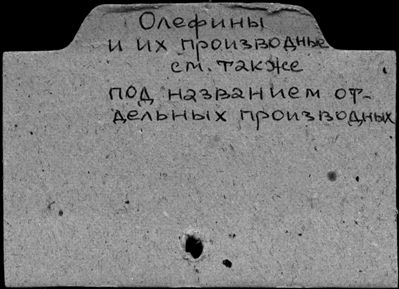 Олефины
и их производные
см. также
под названием от-
дельных производных